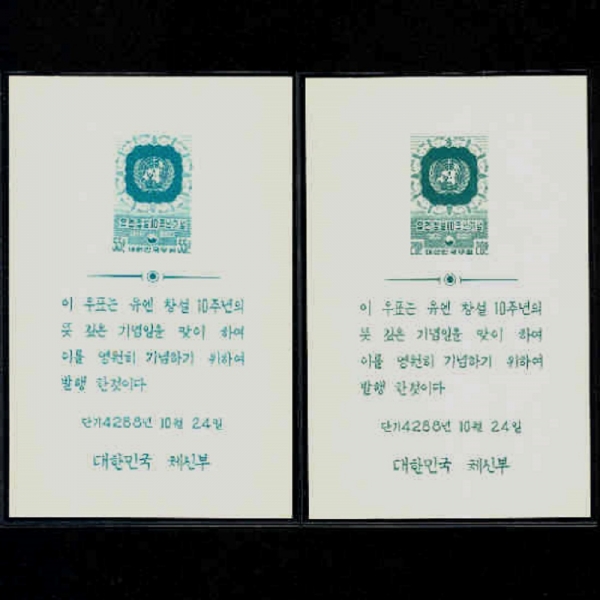 유엔창설10주년기념
55환 55환
대한민국우표
이 우표는 유엔 창설 10주년의
뜻 깊은 기념일을 맞이 하여
이를 영원히 기념하기 위하여
발행 한것이다
단기4288년 10월 24일
대한민국 체신부
유엔창설10주년기념
20환 20환
대한민국우표
이 우표는 유엔 창설 10주년의
뜻 깊은 기념일을 맞이 하여
이를 영원히 기념하기 위하여
발행 한것이다
단기4288년 10월 24일
대한민국 체신부